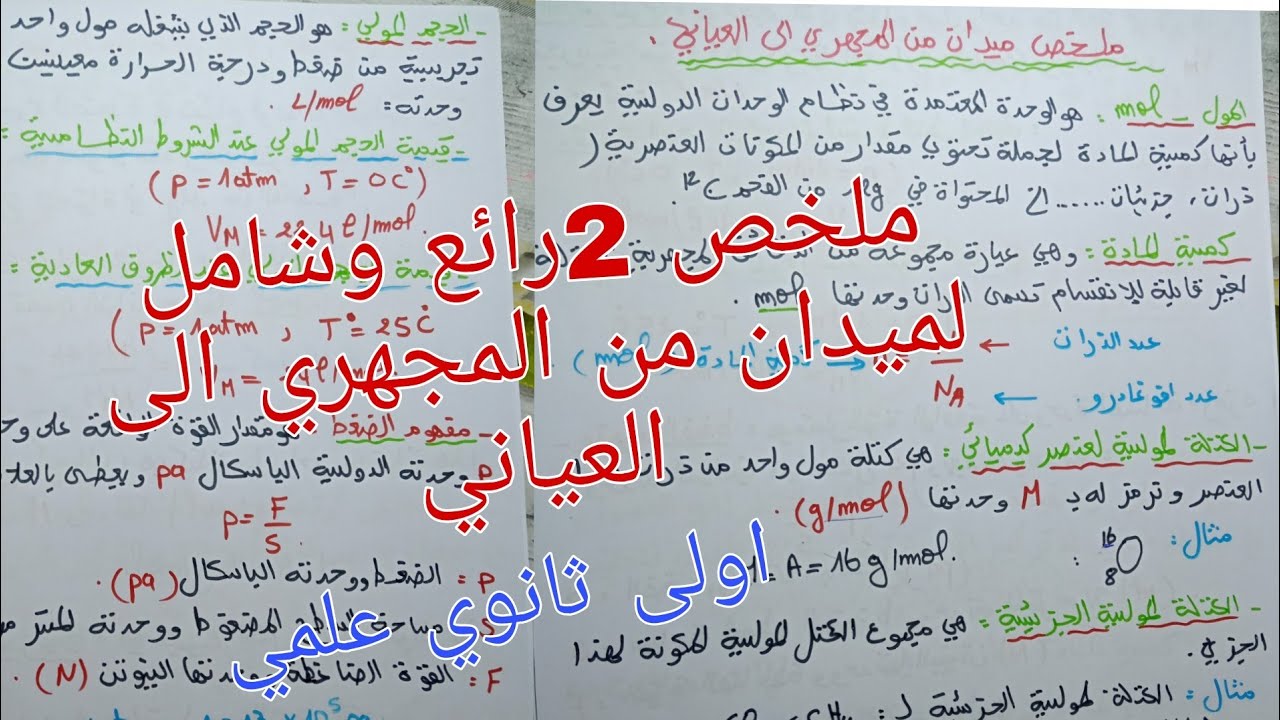 ملخص ميدان من المجهري الى العياني.
المول - mol: هو الوحدة المعتمدة في نظام الوحدات الدولية يعرف
بأنها كمية المادة لجملة تحتوي مقدار من المكونات العنصرية (
ذرات، جزيئات ...... الخ المحتواة في 12g من الفحم C 12.
كمية المادة: وهي عبارة مجموعة من المجهرية
لغير قابلة للانقسام تسمى الذرات وحدتها mol.
عدد الذرات ← كمية المادة (mol)
عدد افوغادرو. ← NA
- الكتلة المولية لعنصر كيميائي: هي كتلة مول واحد من ذرات
العنصر و نرمز له بـ M وحدتها (g/mol).
مثال: 16 O 8 : = A = 16 g/mol.
- الكتلة المولية الجزيئية: هي مجموع الكتل المولية المكونة لهذا
الجزيئ.
مثال: الكتلة المولية الجزيئية لـ
- الحجم المولي: هو الحجم الذي يشغله مول واحد
تجريبية من ضغط ودرجة الحرارة معينيت
وحدته: L/mol.
- قيمة الحجم المولي عند الشروط النظامية:
(P = 1atm , T = 0C°)
VM = 22,4 l/mol.
الظروف العادية:
(P = 1atm , T° = 25C°
VM = l/mol.
- مفهوم الضغط: هو مقدار القوة على
وحدته الدولية الباسكال pa ويعطى
P = F/S
P: الضغط ووحدته الباسكال (pa).
S: مساحة السطح المضغوط ووحدته المتر
F: القوة الضاغطة وحدتها النيوتن (N).
ملخص 2رائع وشامل
لميدان من المجهري الى
العياني
اولى ثانوي علمي